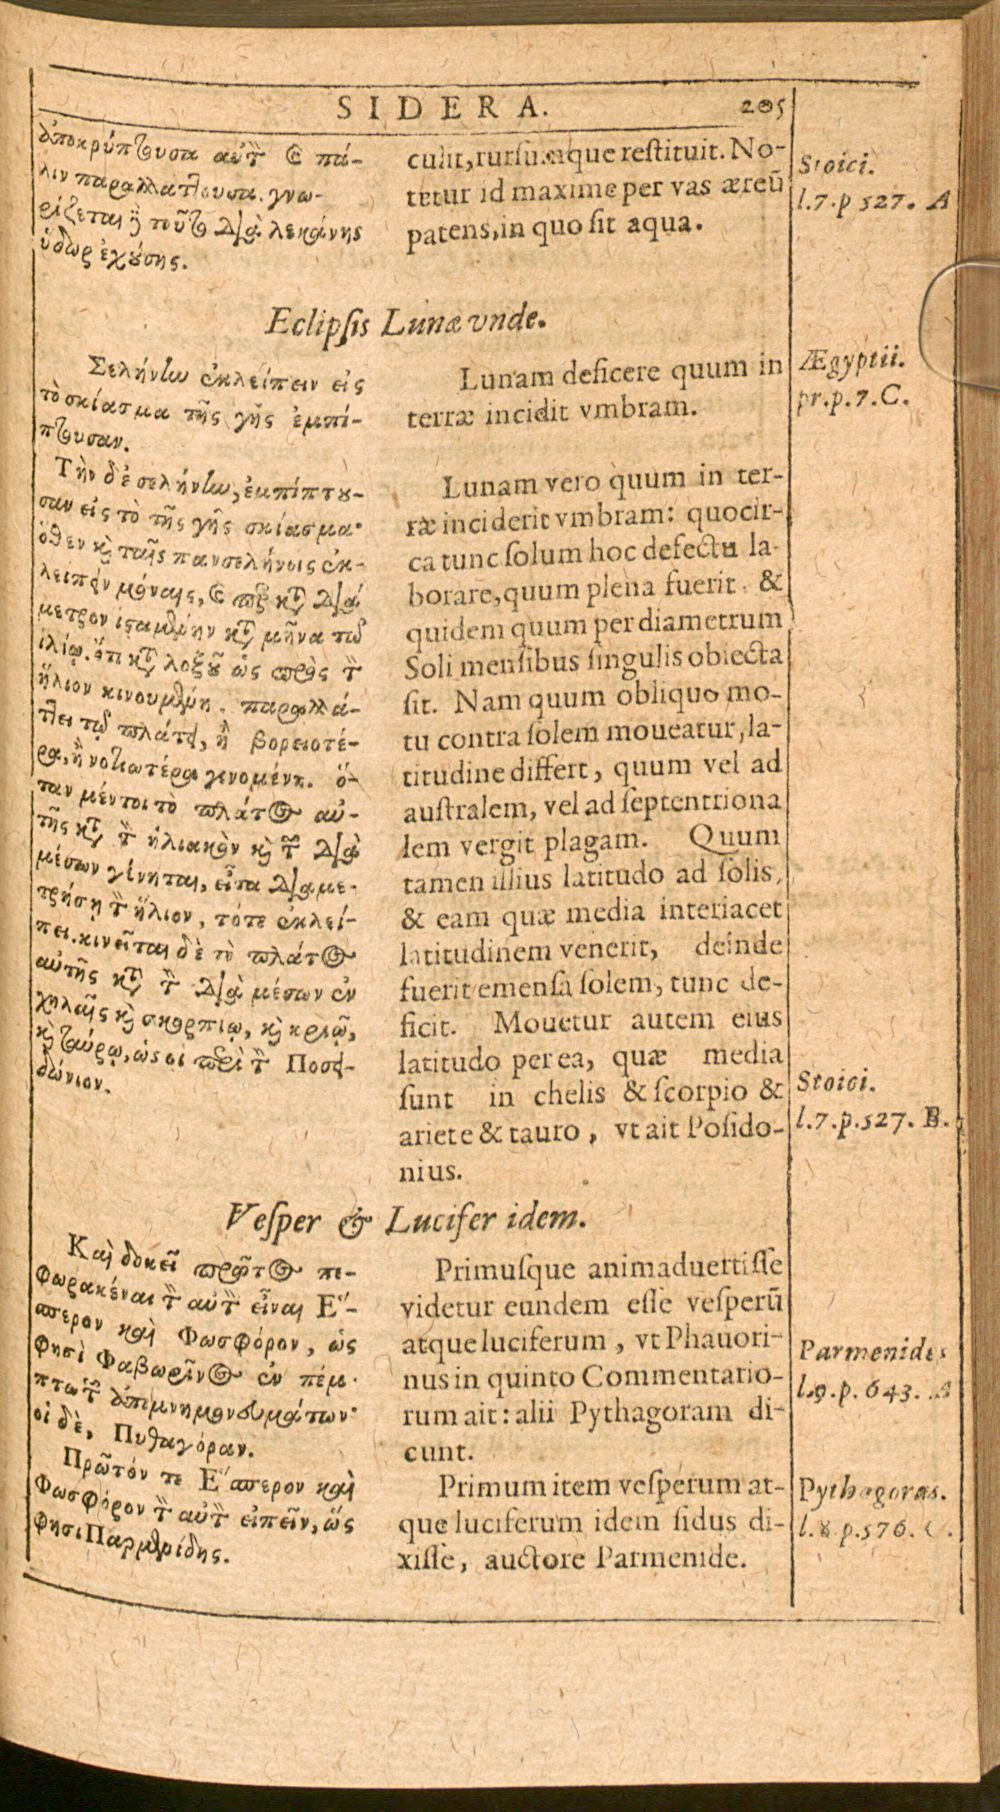 SIDERA. 205
ἀποκρύπτουσα αὐτὸν καὶ πά-
λιν παραλλάττουσα. γνω-
ρίζεται δὲ τοῦτο διὰ λεκάνης
ὕδωρ ἐχούσης.
culit, rursumque restituit. No-
tetur id maxime per vas æreū
patens, in quo sit aqua.
Stoici.
l.7.p 527. A
Eclipsis Lunæ vnde.
Σελήνην ἐκλείπειν εἰς
τὸ σκίασμα τῆς γῆς ἐμπί-
πτουσαν.
Τὴν δὲ σελήνην, ἐμπίπτου-
σαν εἰς τὸ τῆς γῆς σκίασμα·
ὅθεν καὶ ταῖς πανσελήνοις ἐκ-
λείπειν μόναις, καὶ περ κατὰ διά-
μετρον ἱσταμένην κατὰ μῆνα τῷ
ἡλίῳ. ὅτι κατὰ λοξοῦ ὡς πρὸς τὸν
ἥλιον κινουμένη. παραλλά-
ττει τῷ πλάτει, ἢ βορειοτέ-
ρα, ἢ νοτιωτέρα γινομένη. ὅ-
ταν μέντοι τὸ πλάτος αὐ-
τῆς κατὰ τὸν ἡλιακὸν καὶ τὸν διὰ
μέσων γένηται, εἶτα διαμε-
τρήσῃ τὸν ἥλιον, τότε ἐκλεί-
πει. κινεῖται δὲ τὸ πλάτος
αὐτῆς κατὰ τὸν διὰ μέσων ἐν
χηλαῖς καὶ σκορπίῳ, καὶ κριῷ,
καὶ ταύρῳ, ὡς οἱ περὶ τὸν Ποσει-
δώνιον.
Lunam deficere quum in
terræ incidit vmbram.
Lunam vero quum in ter-
ræ inciderit vmbram: quocir-
ca tunc solum hoc defectu la-
borare, quum plena fuerit. &
quidem quum per diametrum
Soli mensibus singulis obiecta
sit. Nam quum obliquo mo-
tu contra solem moueatur, la-
titudine differt, quum vel ad
australem, vel ad septentriona
lem vergit plagam. Quum
tamen illius latitudo ad solis,
& eam quæ media interiacet
latitudinem venerit, deinde
fuerit emensa solem, tunc de-
ficit. Mouetur autem eius
latitudo per ea, quæ media
sunt in chelis & scorpio &
ariete & tauro, vt ait Posido-
nius.
Ægyptii.
pr.p.7.C.
Stoici.
l.7.p.527. B.
Vesper & Lucifer idem.
Καὶ δοκεῖ πρῶτος πε-
φωρακέναι τὸν αὐτὸν εἶναι Ἕ-
σπερον καὶ Φωσφόρον, ὡς
φησὶ Φαβωρῖνος ἐν πέμ-
πτῳ τῶν ἀπομνημονευμάτων·
οἱ δὲ, Πυθαγόραν.
Πρῶτόν τε Ἕσπερον καὶ
Φωσφόρον τὸν αὐτὸν εἰπεῖν, ὥς
φησι Παρμενίδης.
Primusque animaduertisse
videtur eundem esse vesperū
atque luciferum, vt Phauori-
nus in quinto Commentatio-
rum ait: alii Pythagoram di-
cunt.
Primum item vesperum at-
que luciferum idem sidus di-
xisse, auctore Parmenide.
Parmenides
l.9.p. 643. A
Pythagoras.
l.8 p.576. C.